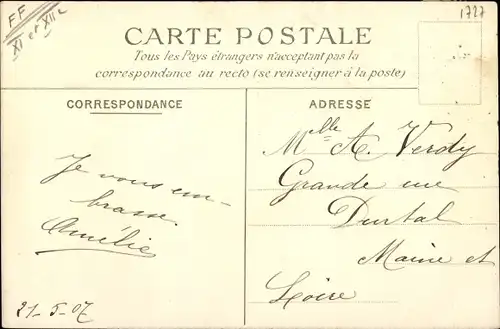 FF
XI et XIIe
1727
CARTE POSTALE
Tous les Pays étrangers n'acceptant pas la
correspondance au recto (se renseigner à la poste)
CORRESPONDANCE
Je vous em-
brasse.
Amélie
21-5-07
ADRESSE
Mlle A. Verdy
Grande rue
Durtal
Maine et
Loire